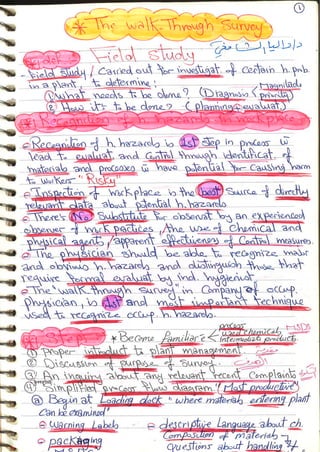 1
* The Walk-Through Survey
Field study
- Field study / Carried out for investigat. of certain h. prob.
in a plant, to determine:
① What needs to be done? (Diagnosis Magnitude priority)
② How it's to be done? (planning + evaluat)
* Recognition of h. hazards in workplace
- Recognition of h. hazards is 1st step in process
lead to evaluat. and Control through identificat. of
materials and processes have potential for causing harm
to workers. Risky
- Inspection of workplace is the best source of directly
relevant data about potential h. hazards
- There's No Substitute for observat. by an experienced
observer of work practices, the use of Chemical and
physical agents, apparent effectiveness of Control measures.
- The physician should be able to recognize major
and obvious h. hazards and distinguish those that
require formal evaluat. by ind. hygienist
- The "walk through survey" in Company of occup.
physician, is 1st and most important technique
used to recognize occup. h. hazards.
* Became familiar process used chemicals intermediate products
① Proper introduct. to plant management
② Discussion of purpose of survey
③ inquiry about any relevant recent Complaints
④ Simplified process flow diagram "Most productive"
ⓐ Begin at "Loading dock" where materials entering plant
Can be examined
- Warning Labels
- descriptive Language about ch.
Composition of materials
- packaging
- Questions about handling of